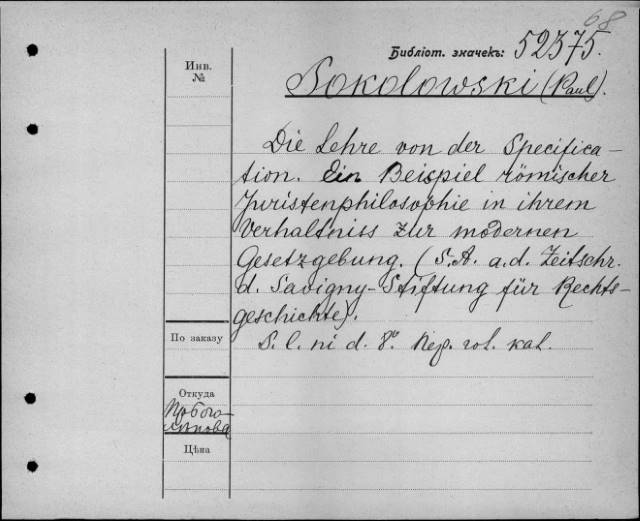 68
Библіот. значекъ: 52375.
Инв.
№
Sokolowski (Paul).
Die Lehre von der Specifica-
tion. Ein Beispiel römischer
Juristenphilosophie in ihrem
Verhältniss zur modernen
Gesetzgebung. (S.A. a.d. Zeitschr.
d. Savigny-Stiftung für Rechts-
geschichte).
По заказу
S. l. ni d. 8°. Пер. гол. кал.
Откуда
Цѣна